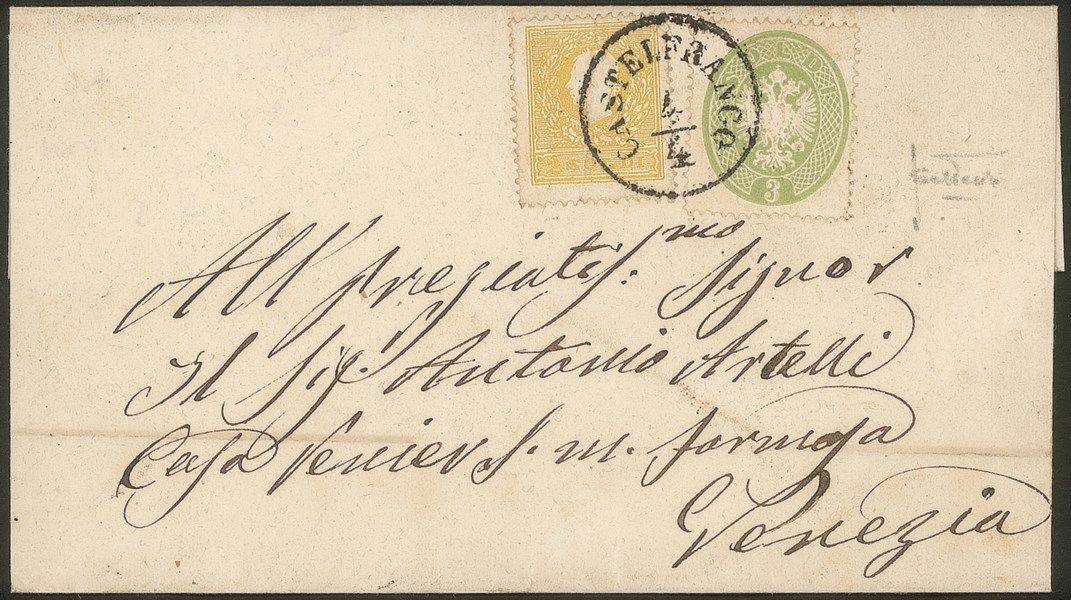 CASTELFRANCO
4/4
2 S
SOLDI
3
All pregiatis.mo Signor
Il Sig. Antonio Artelli
Casa Venier S. m. formosa
Venezia